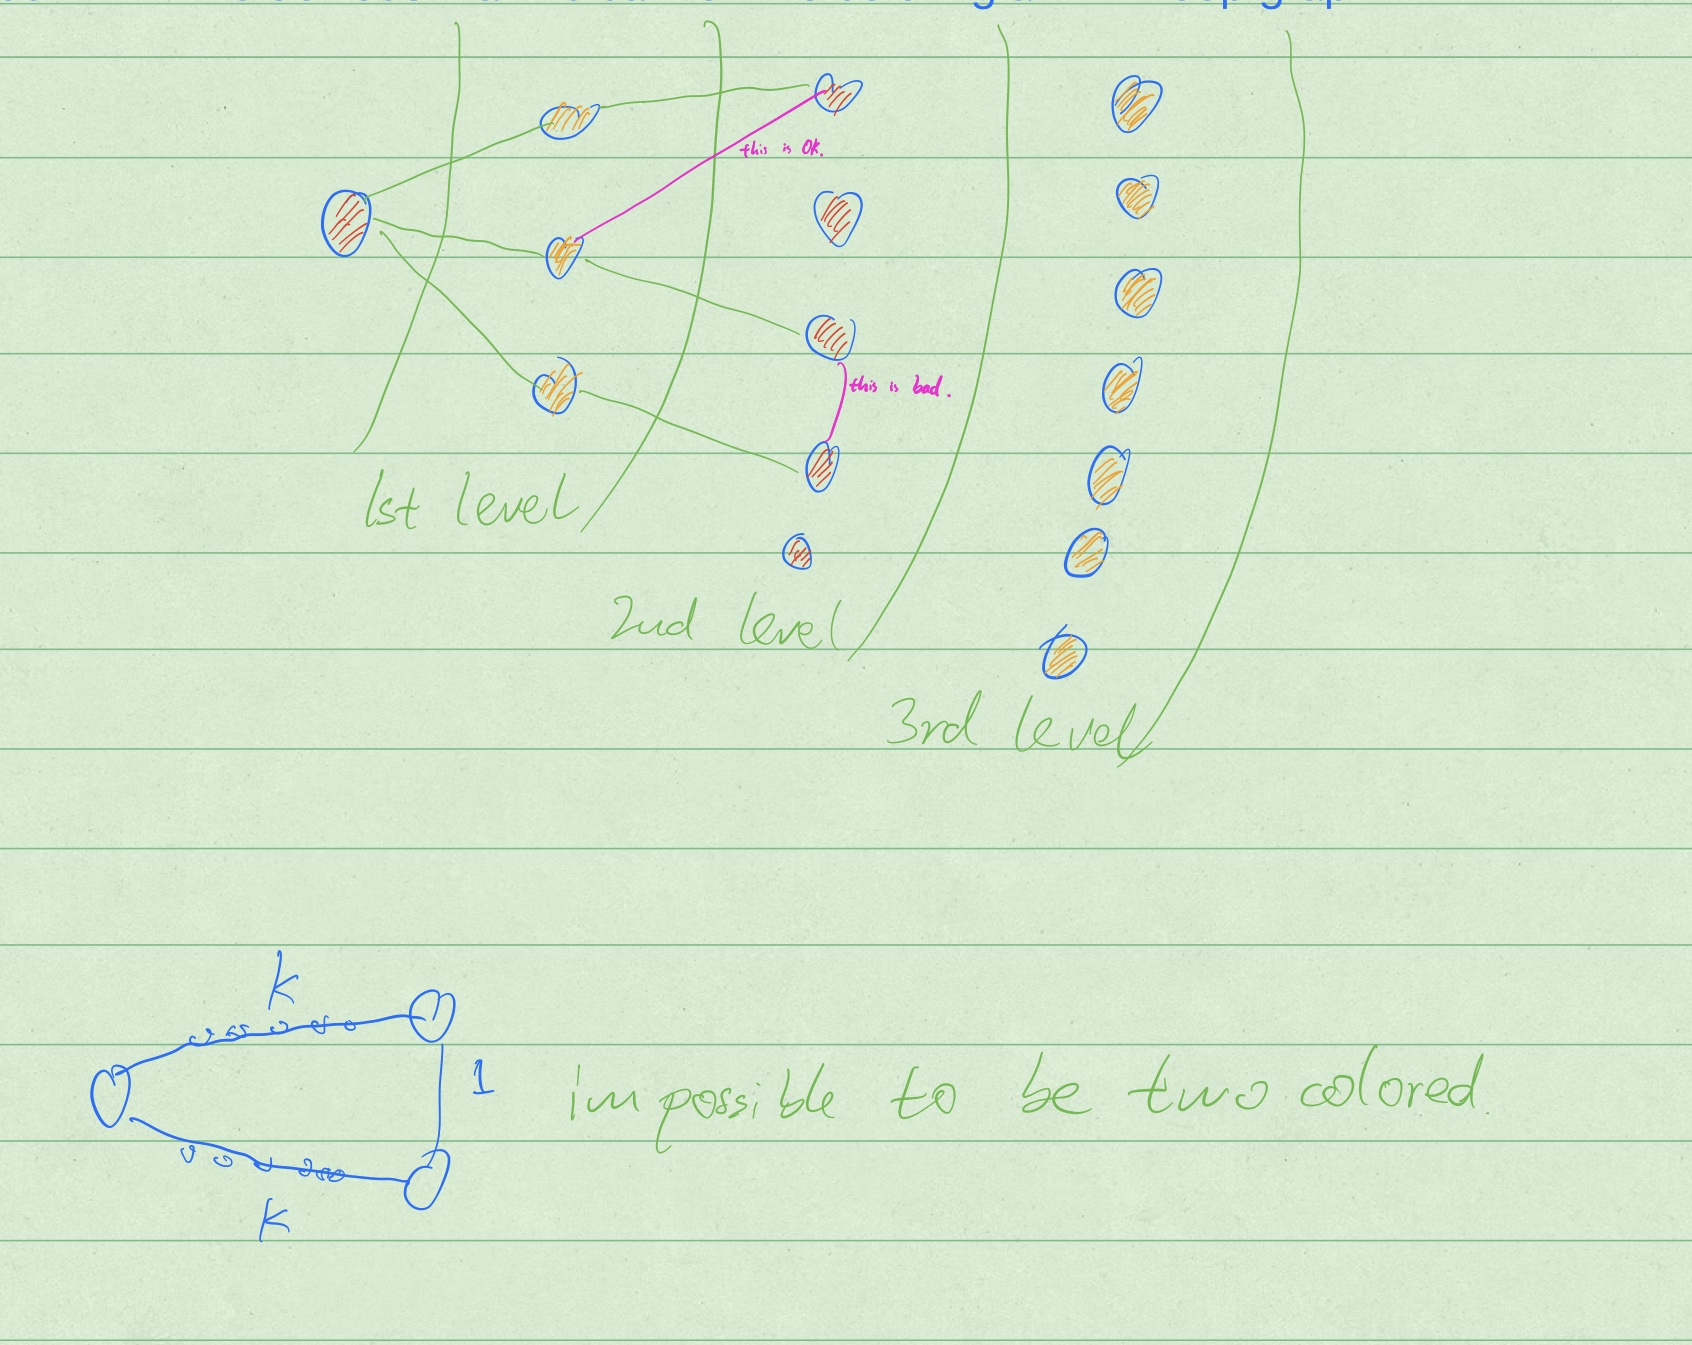 this is OK.
this is bad.
1st level
2nd level
3rd level
k
1
impossible to be two colored
k